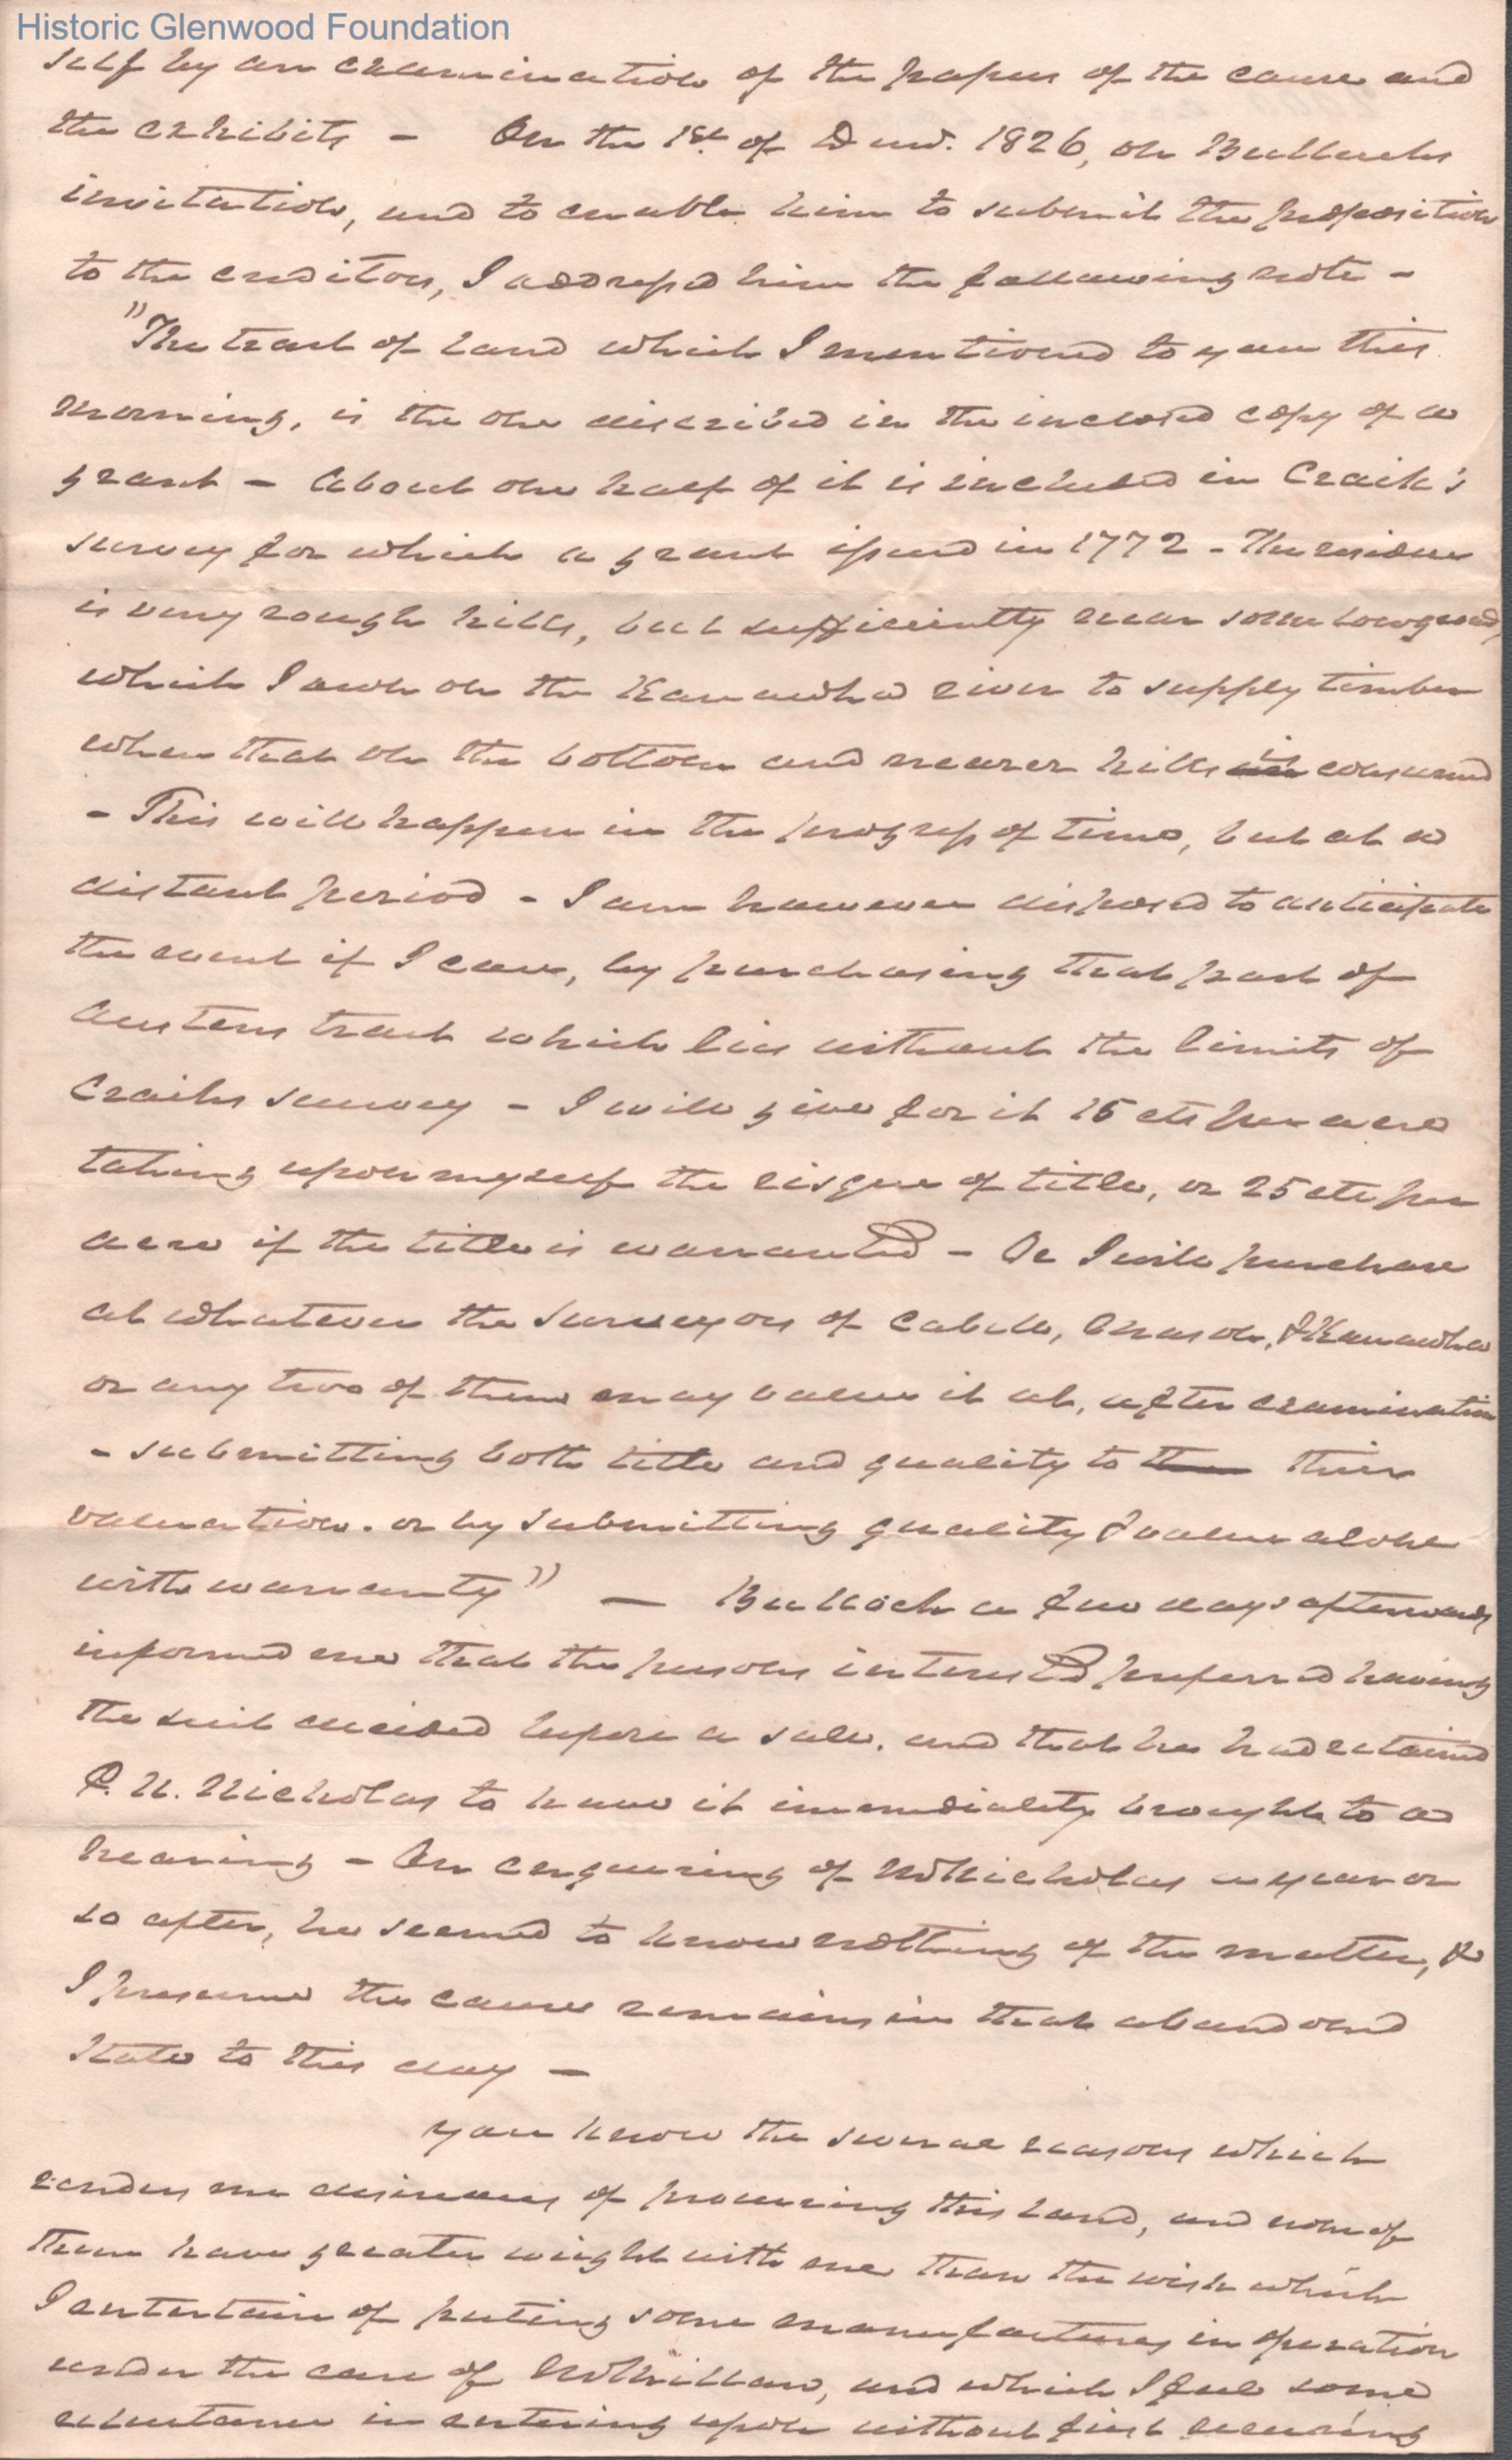 Historic Glenwood Foundation
self by an examination of the papers of the cause and
the exhibits - On the 1st. of Decr. 1826, on Bullocks
invitation, and to enable him to submit the proposition
to the creditors, I addressed him the following note -
"The tract of land which I mentioned to you this
morning, is the one described in the inclosed copy of a
grant - About one half of it is included in Craik's
survey for which a grant issued in 1772 - The residue
is very rough hills, but sufficiently near some low grounds,
which I own on the Kanawha river to supply timber
when that on the bottom and nearer hills is consumed
- This will happen in the progress of time, but at a
distant period - I am however disposed to anticipate
the event if I can, by purchasing that part of
Austens tract which lies without the limits of
Craiks survey - I will give for it 15 cts per acre
taking upon myself the risque of title, or 25 cts per
acre if the title is warranted - Or I will purchase
at whatever the surveyors of Cabell, Mason, & Kanawha
or any two of them may value it at, after examination
- submitting both title and quality to their
valuation. or by submitting quality & value alone
with warranty" - Bullock a few days afterwards
informed me that the persons interested preferred having
the suit decided before a sale. and that he had retained
P. N. Nicholas to have it immediately brought to a
hearing - On enquiring of Mr Nicholas a year or
so after, he seemed to know nothing of the matter, &
I presume the cause remains in that abandoned
state to this day -
you know the several reasons which
renders me desireous of procuring this land, and none of
them have greater weight with me than the wish which
I entertain of puting some manufactures in operation
under the care of , and which I feel some
reluctance in entering upon without first securing